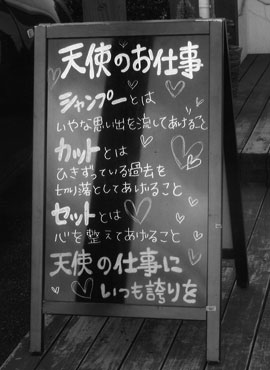 天使のお仕事
シャンプーとは
いやな思い出を流してあげること
カットとは
ひきずっている過去を
切り落としてあげること
セットとは
心を整えてあげること
天使の仕事に
いつも誇りを